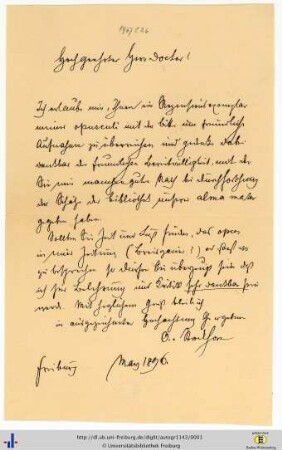 Hochgeehrter Herr Doctor!
Ich erlaube mir, Ihnen ein Rezensionsexemplar
meines opusculi mit der Bitte um freundliche
Aufnahme zu überreichen und gedenke dabei
dankbar der freundlichen Bereitwilligkeit, mit der
Sie mir manchen guten Rat bei Durchforschung
der Schätze der Bibliothek unserer alma mater
gegeben haben.
Sollten Sie Zeit und Lust finden, das opus
in einer Zeitung (Breisgauer!)
zu besprechen so dürfen Sie überzeugt sein daß
ich für Belehrung und Kritik sehr dankbar sein
werd. Mit herzlichem Gruß bleibe ich
in ausgezeichneter Hochachtung Ihr ergebener
Freiburg März 1896.
http://dl.ub.uni-freiburg.de/diglit/autogr1143/0001
© Universitätsbibliothek Freiburg